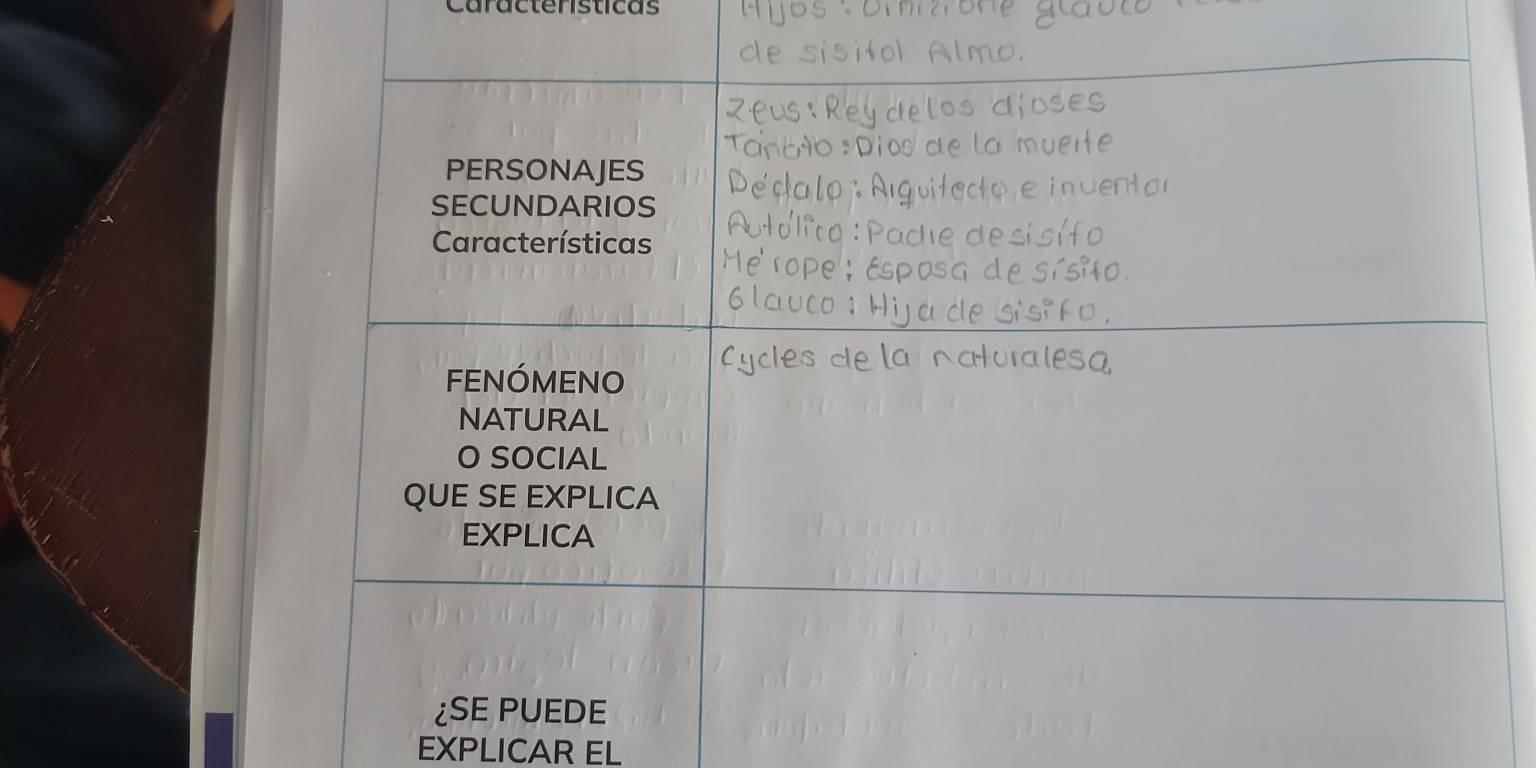 Características
Hijos:
de sisifol Almo.
Zeus: Rey delos dioses
Tánato: Dios de la muerte
PERSONAJES
SECUNDARIOS
Características
Dédalo: Arquitecto, e inventor
Autólico: Padre de sisifo
Mérope: Esposa de sísifo.
Glauco: Hija de sisifo.
FENÓMENO
NATURAL
O SOCIAL
QUE SE EXPLICA
EXPLICA
Cycles de la naturalesa
¿SE PUEDE
EXPLICAR EL